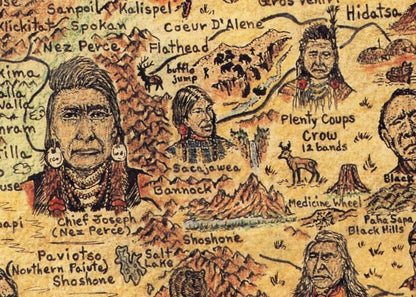 Sanpoil
Kalispel
Gros Ventre
Hidatsa
Klickitat
Spokan
Coeur D'Alene
Nez Perce
Flathead
buffalo
jump
Plenty Coups
Crow
12 bands
Sacajawea
Bannock
Medicine Wheel
Black
Chief Joseph
(Nez Perce)
Shoshone
Paha Sapa
Black Hills
Paviotso
(Northern Paiute)
Shoshone
Salt
Lake